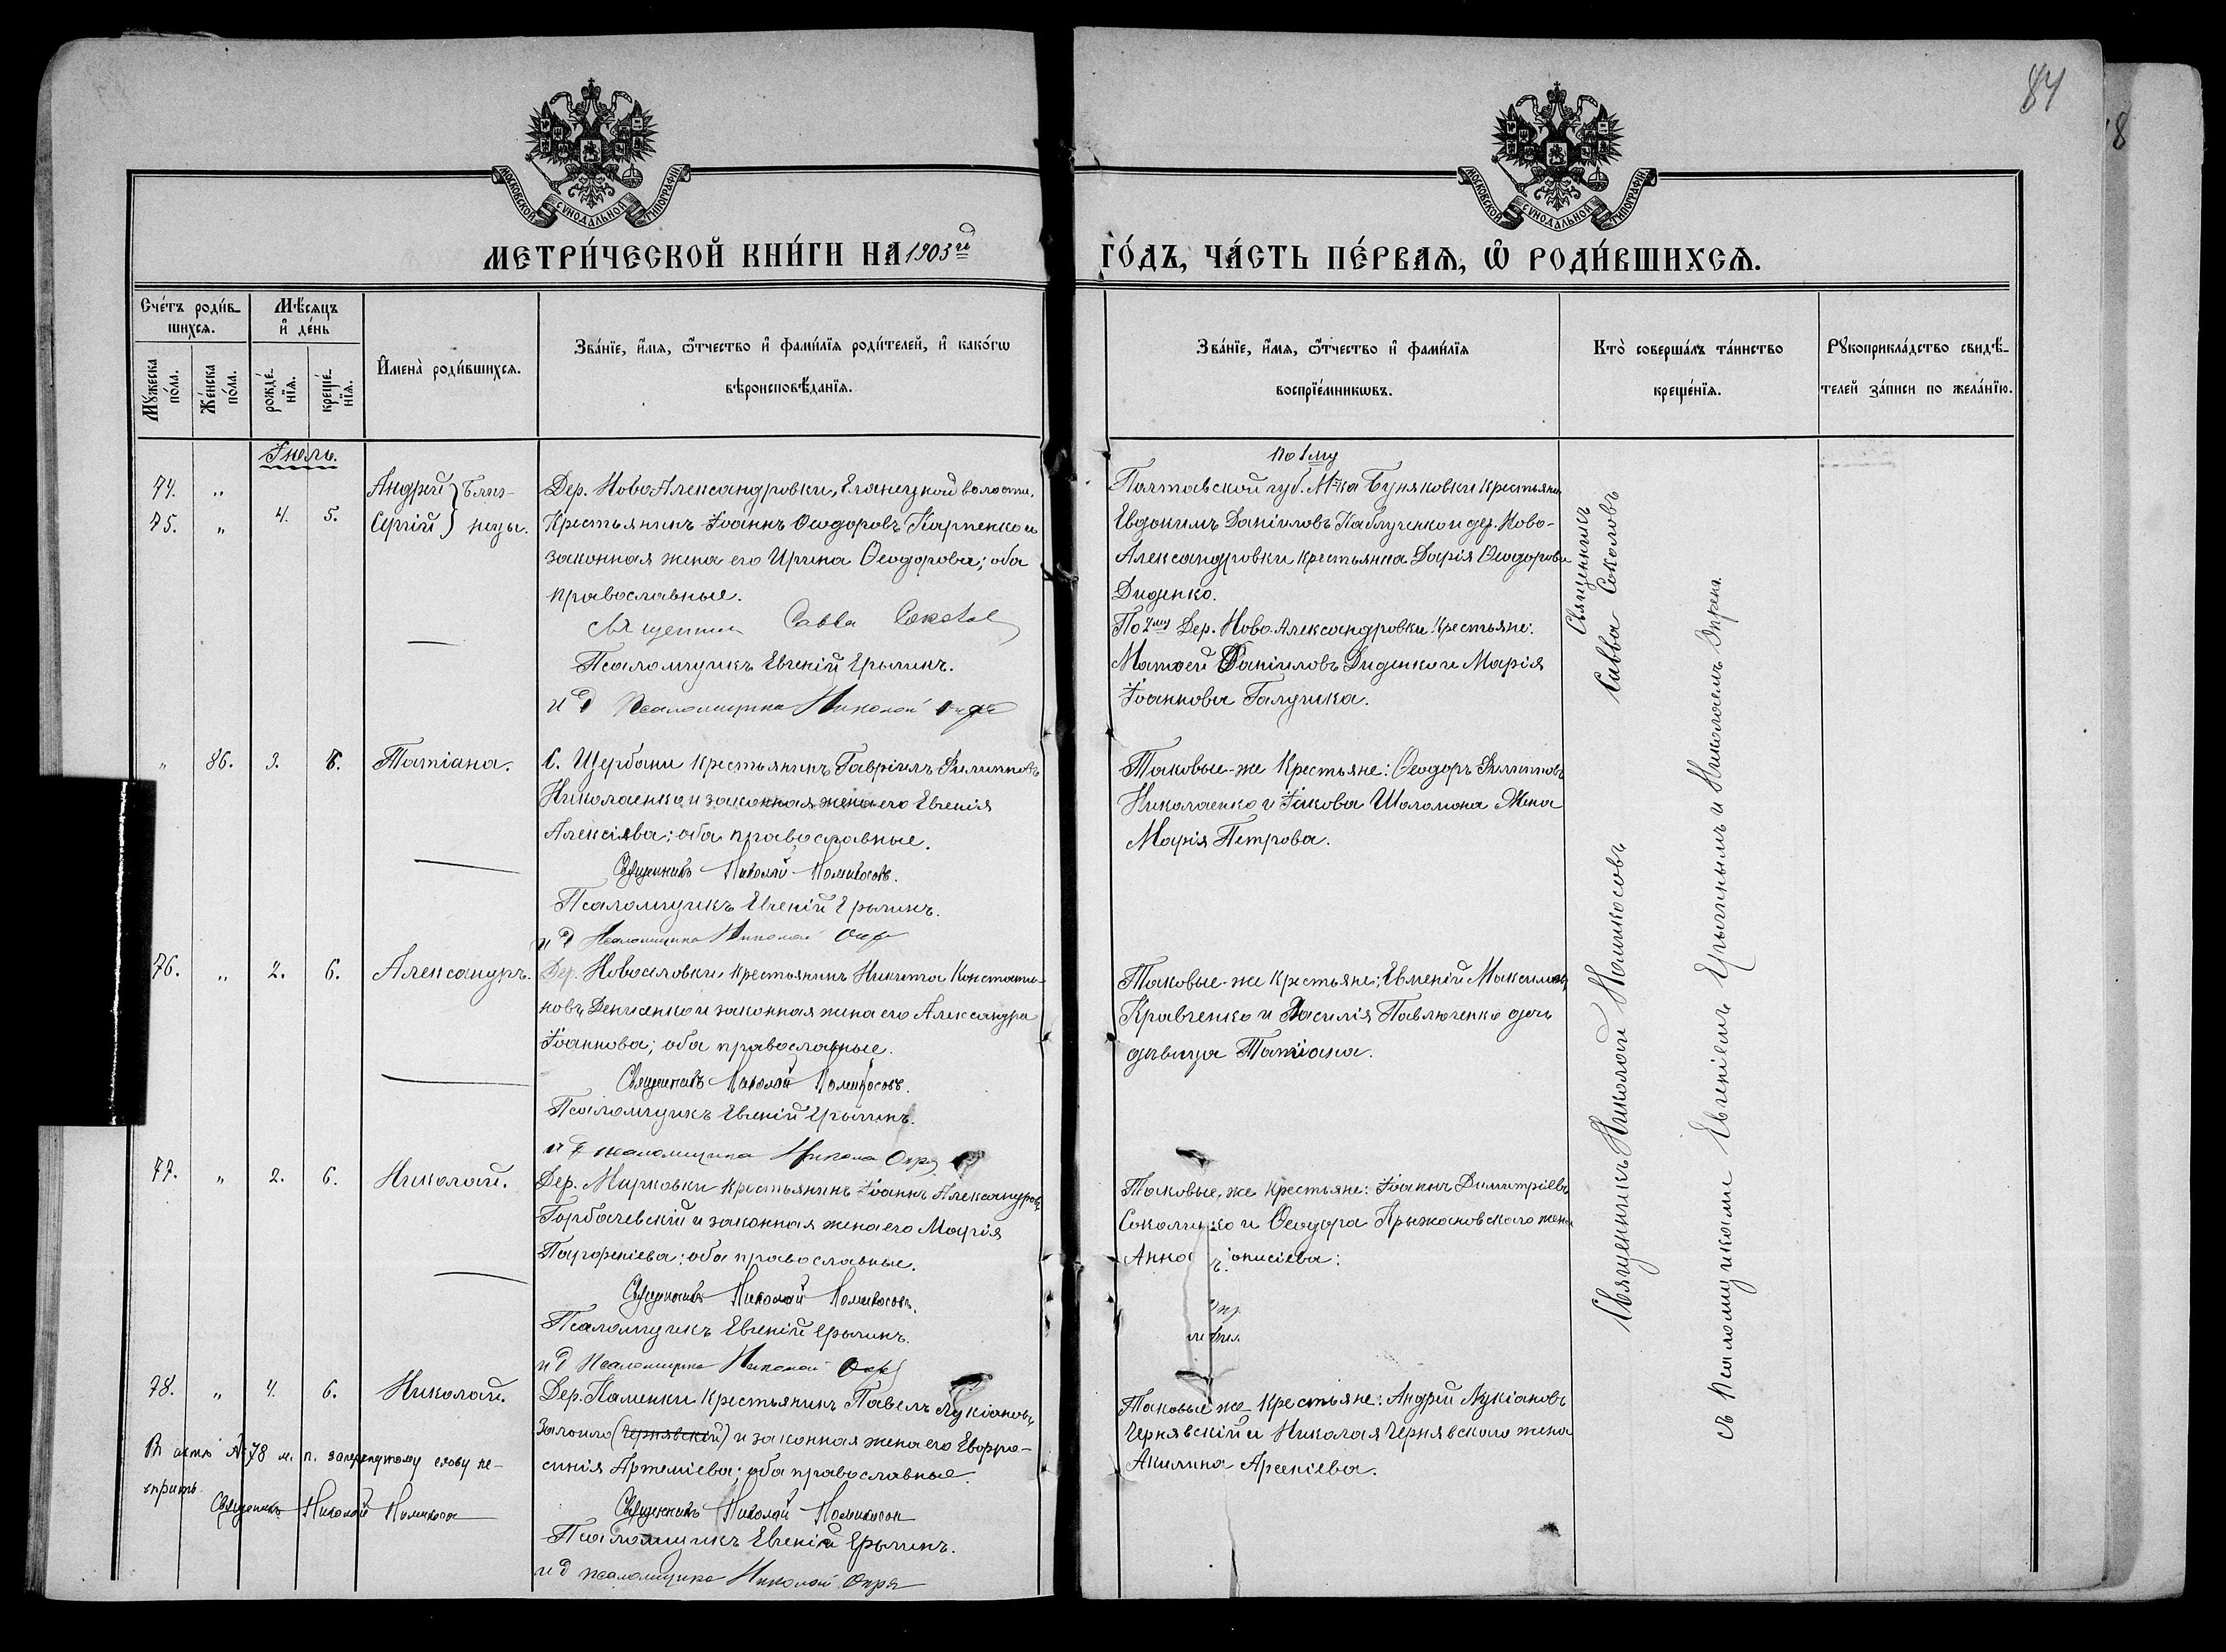 84
8
МОСКОВСКОЙ СѴНОДАЛЬНОЙ ТИПОГРАФІИ
МОСКОВСКОЙ СѴНОДАЛЬНОЙ ТИПОГРАФІИ
МЕТРИ́ЧЕСКОЙ КНИ́ГИ НА 1903й
ГО́ДЪ, ЧА́СТЬ ПЕ́РВАѦ, Ѽ РОДИ́ВШИХСѦ.
Сче́тъ роди́в-
шихсѧ.
Мꙋ́жеска по́ла.
Же́нска по́ла.
Мѣ́сяцъ
и҆ де́нь
рожде́-
нїѧ.
креще́-
нїѧ.
И҆мена̀ роди́вшихсѧ.
Зва́нїе, и҆́мѧ, ѻ҆́тчество и҆ фами́лїѧ роди́телей, и҆ како́гѡ
вѣроисповѣ́данїѧ.
Зва́нїе, и҆́мѧ, ѻ҆́тчество и҆ фами́лїѧ
воспрїе́мникѡвъ.
Кто̀ соверша́лъ та́инство
креще́нїѧ.
Рꙋкоприкла́дство свидѣ́-
телей за́писи по жела́нїю.
Іюль.
74. „
75. „ 4. 5.
Андрей } Близ-
Сергій } нецы.
Дер. НовоАлександровки, Еланецкой волости,
Крестьянинъ Іоаннъ Ѳеодоровъ Карпенко и
законная жена его Ирина Ѳеодорова; оба
православные.
Священник Савва Соколов
Псаломщикъ Евгеній Ерылинъ.
и д Псаломщика Николай
По 1му
Полтавской губ. Мѣ-ка Буняковки крестьянин
Евдокимъ Даніиловъ Каблученко и дер. Ново-
Александровки крестьянка Дарія Ѳеодорова
Диденко.
По 2му Дер. Ново-Александровки Крестьяне:
Матѳей Даніиловъ Диденко и Марія
Іоаннова Галушка.
Священникъ
Савва Соколовъ
„ 86. 3. 6. Татіана.
С. Щербани крестьянинъ Гавріилъ Филипповъ
Николаенко и законная жена его Евгенія
Алексіева; оба православные.
Священникъ Николай Помикосовъ.
Псаломщикъ Евгеній Ерылинъ.
и д Псаломщика Николай
Таковые-же Крестьяне: Ѳеодоръ Филипповъ
Николаенко и Іакова Шаломона Жена
Марія Петрова.
76. „ 2. 6. Александръ.
Дер. Новоселовки, крестьянинъ Никита Константи-
новъ Денисенко и законная жена его Александра
Іоаннова; оба православные.
Священникъ Николай Помикосовъ.
Псаломщикъ Евгеній Ерылинъ.
и д псаломщика Никола
Таковые-же крестьяне: Евменій Максимовъ
Кравченко и Василія Павлюченко дочь
дѣвица Татіана.
77. „ 2. 6. Николай.
Дер. Мирковки крестьянинъ Іоаннъ Александровъ
Горбачевскій и законная жена его Марія
Парѳеніева; оба православные.
Священникъ Николай Помикосовъ.
Псаломщикъ Евгеній Ерылинъ.
и д Псаломщика Николай
Таковые же крестьяне: Іоаннъ Димитріевъ
и Ѳеодора Крыжановскаго жена
Анна онисіева:
78. „ 4. 6. Николай.
Дер. Каменки крестьянинъ Павелъ Лукіановъ
(Чернявскій) и законная жена его Евфро-
синія Артеміева; оба православные.
Священникъ Николай Помикосов
Псаломщикъ Евгеній Ерылинъ.
и д псаломщика Николай
Таковые же Крестьяне: Андрей Лукіановъ
Чернявскій и Николая Чернявскаго жена
Акилина Арсеніева.
В актѣ № 78 м. п. зачеркнутому слову не-
вѣрить
Священникъ Николай Помикосов
Священникъ Николай Помикосовъ
съ Псаломщиками Евгеніемъ Ерылинымъ и Николаемъ